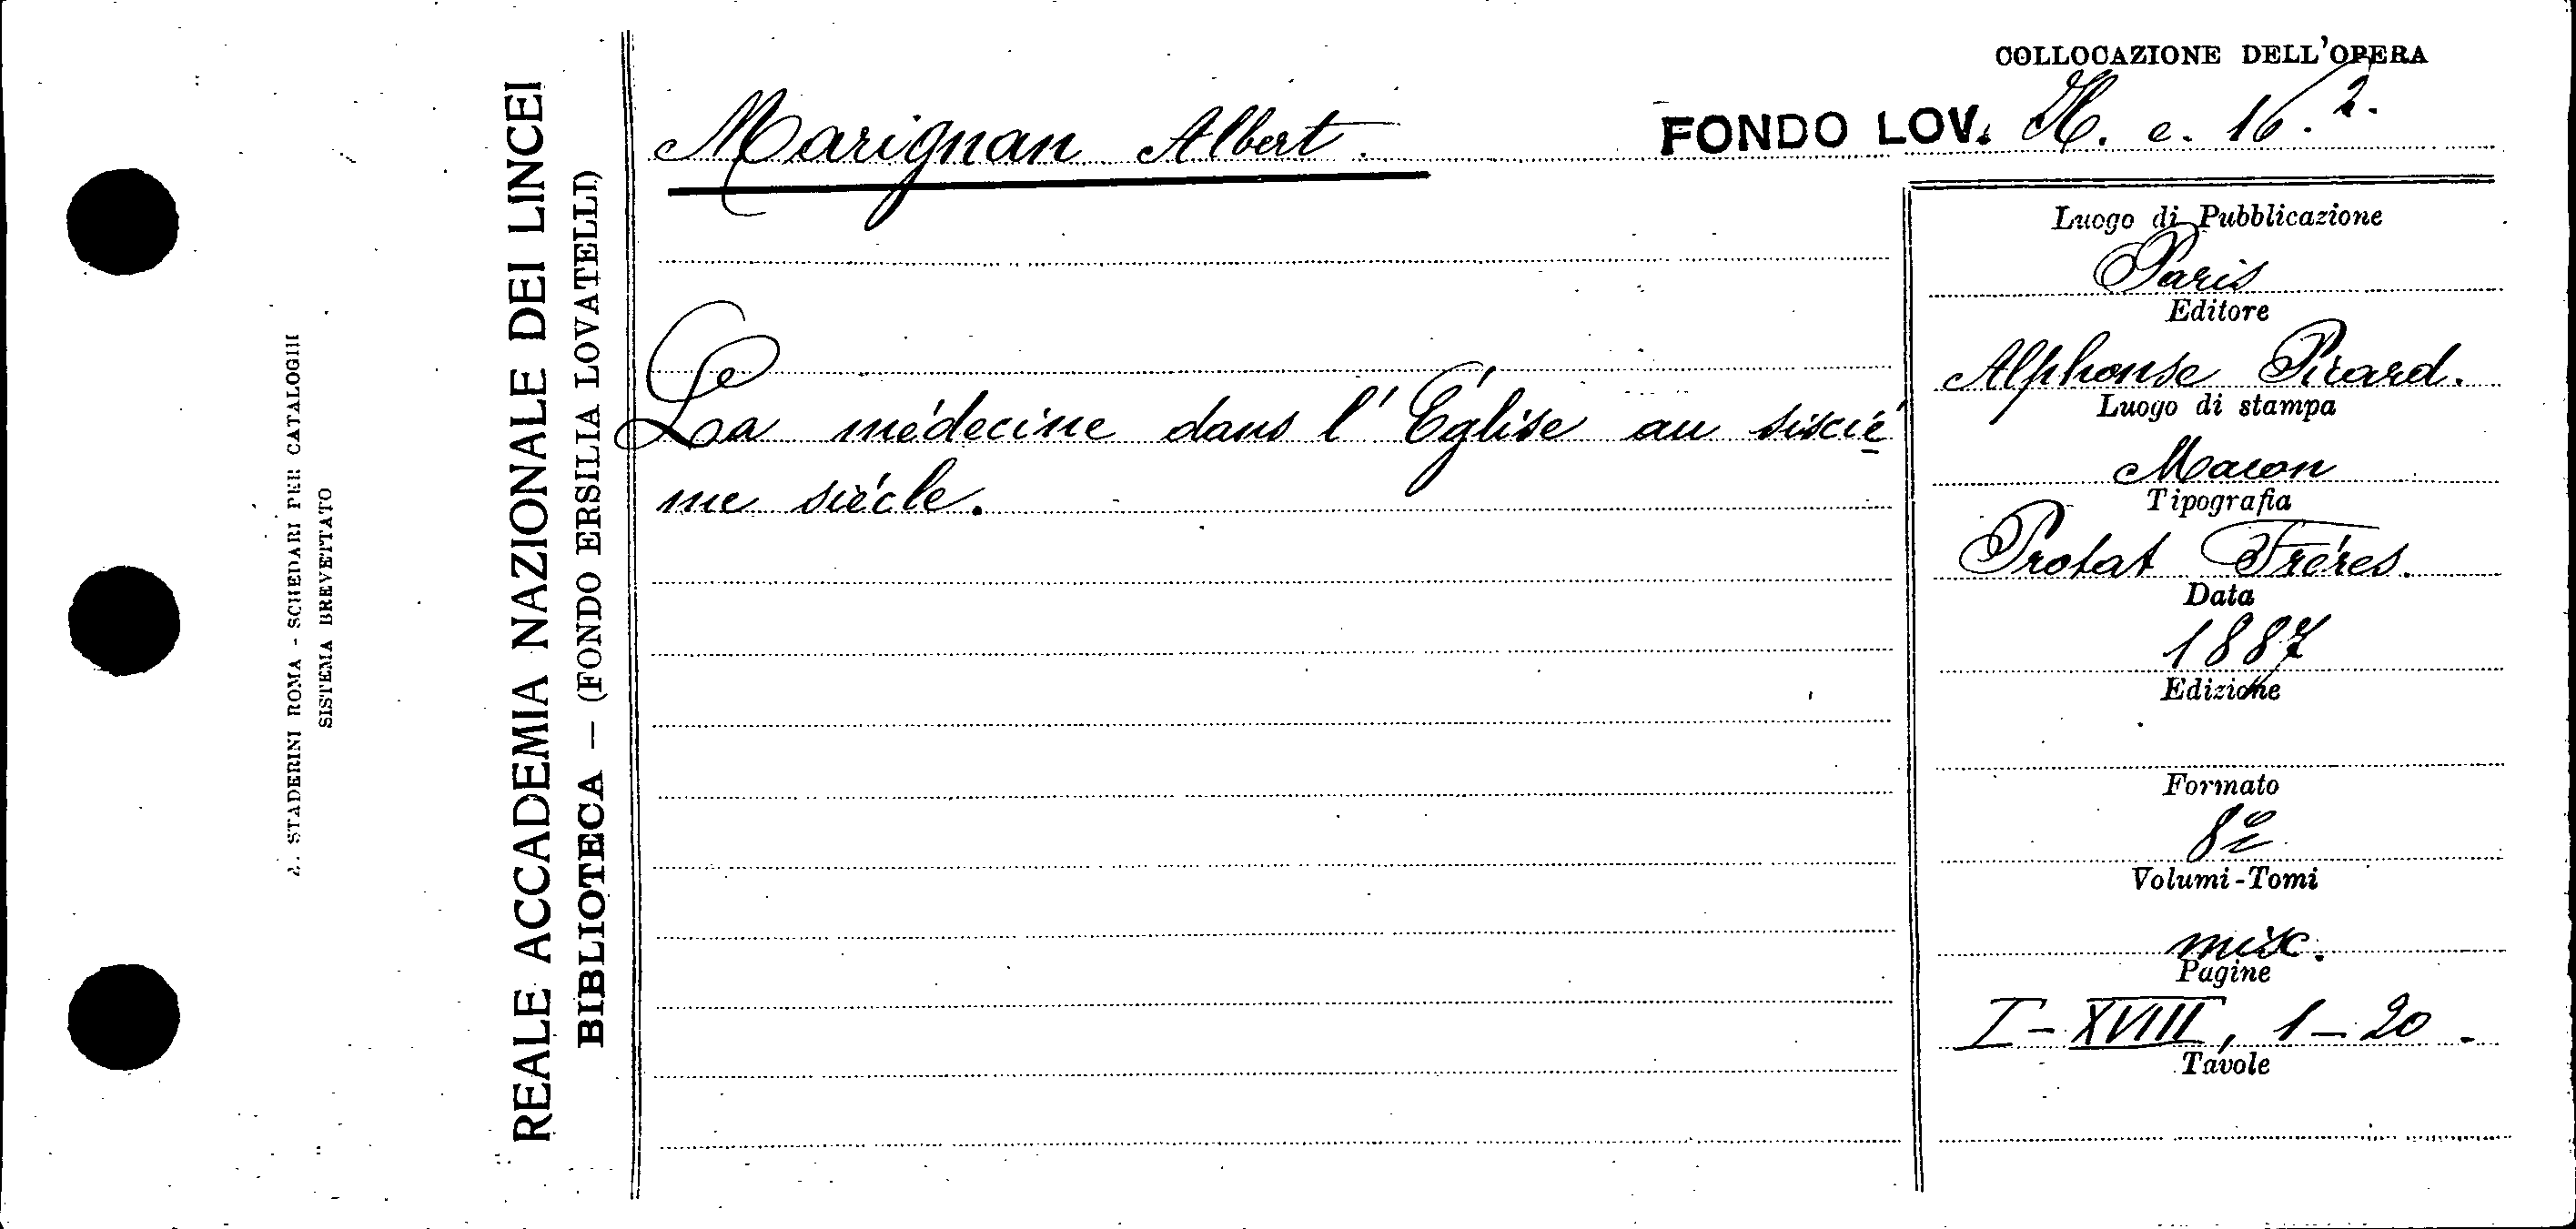 COLLOCAZIONE DELL'OPERA
Marignan Albert.
FONDO LOV. H. e. 16. 2.
La médecine dans l'Église au siscié
me siécle.
Luogo di Pubblicazione
Paris
Editore
Alphonse Picard.
Luogo di stampa
Macon
Tipografia
Protat Fréres.
Data
1887
Edizione
Formato
8º
Volumi-Tomi
misc.
Pagine
I-XVIII, 1-20.
Tavole
REALE ACCADEMIA NAZIONALE DEI LINCEI
BIBLIOTECA — (FONDO ERSILIA LOVATELLI)
STADERINI ROMA - SCHEDARI PER CATALOGHI
SISTEMA BREVETTATO